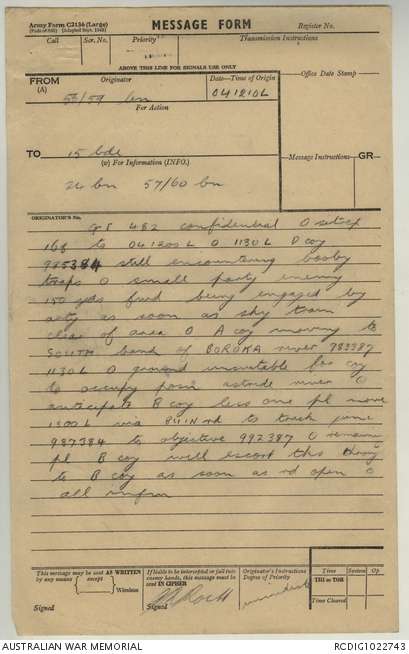 Army Form C2136 (Large)
MESSAGE FORM
Register No.
Call
Ser. No.
Priority
Transmission Instructions
ABOVE THIS LINE FOR SIGNALS USE ONLY
FROM
(A)
Originator
Date—Time of Origin
Office Date Stamp
58/59 bn
041210L
For Action
TO
15 bde
(W) For Information (INFO.)
Message Instructions
GR
24 bn 57/60 bn
ORIGINATOR'S No.
482 confidential O sitrep
168 to 041200L O 1130L D coy
985384 still encountering booby
traps O small party enemy
150 yds fwd being engaged by
arty as soon as
clear of area O A coy moving to
SOUTH bank of river 983387
1130L O ground unsuitable for
to occupy posn astride river O
anticipate B coy less one pl move
1300L via BUIN rd to track junc
987384 to objective 992387 O remaining
pl B coy will escort this
to B coy as soon as rd open O
all infm
This message may be sent AS WRITTEN
by any means
except
Wireless
Signed
If liable to be intercepted or fall into
enemy hands, this message must be
sent IN CIPHER
Signed
Originator's Instructions
Degree of Priority
immediate
Time
System
Op
THI or TOR
Time Cleared
AUSTRALIAN WAR MEMORIAL
RCDIG1022743